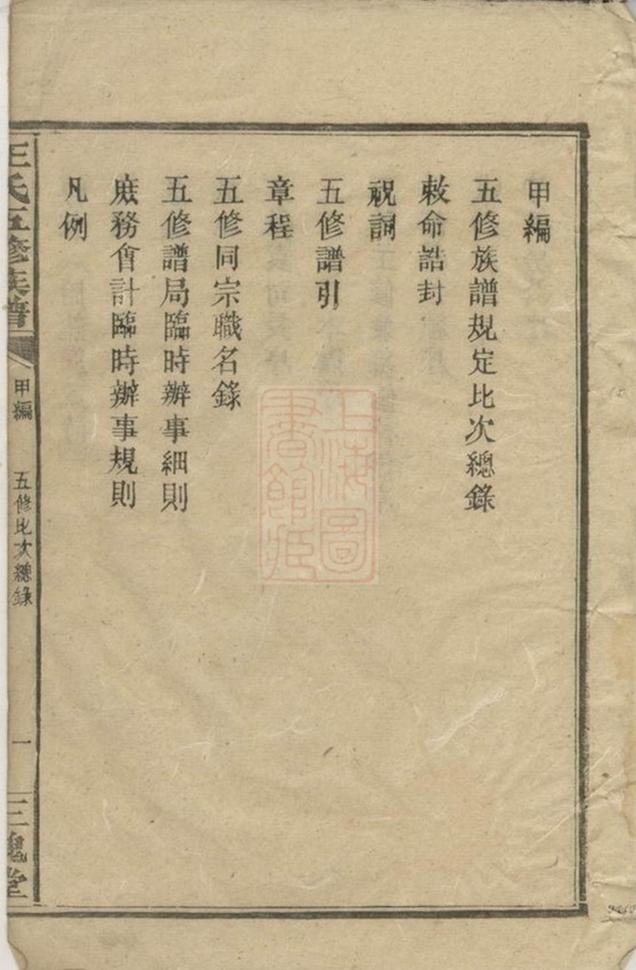 甲編
五修族譜規定比次總錄
敕命誥封
祝詞
五修譜引
章程
五修同宗職名錄
五修譜局臨時辦事細則
庶務會計臨時辦事規則
凡例
王氏五修族譜
甲編
五修比次總錄
一
三槐堂
上海圖書館藏